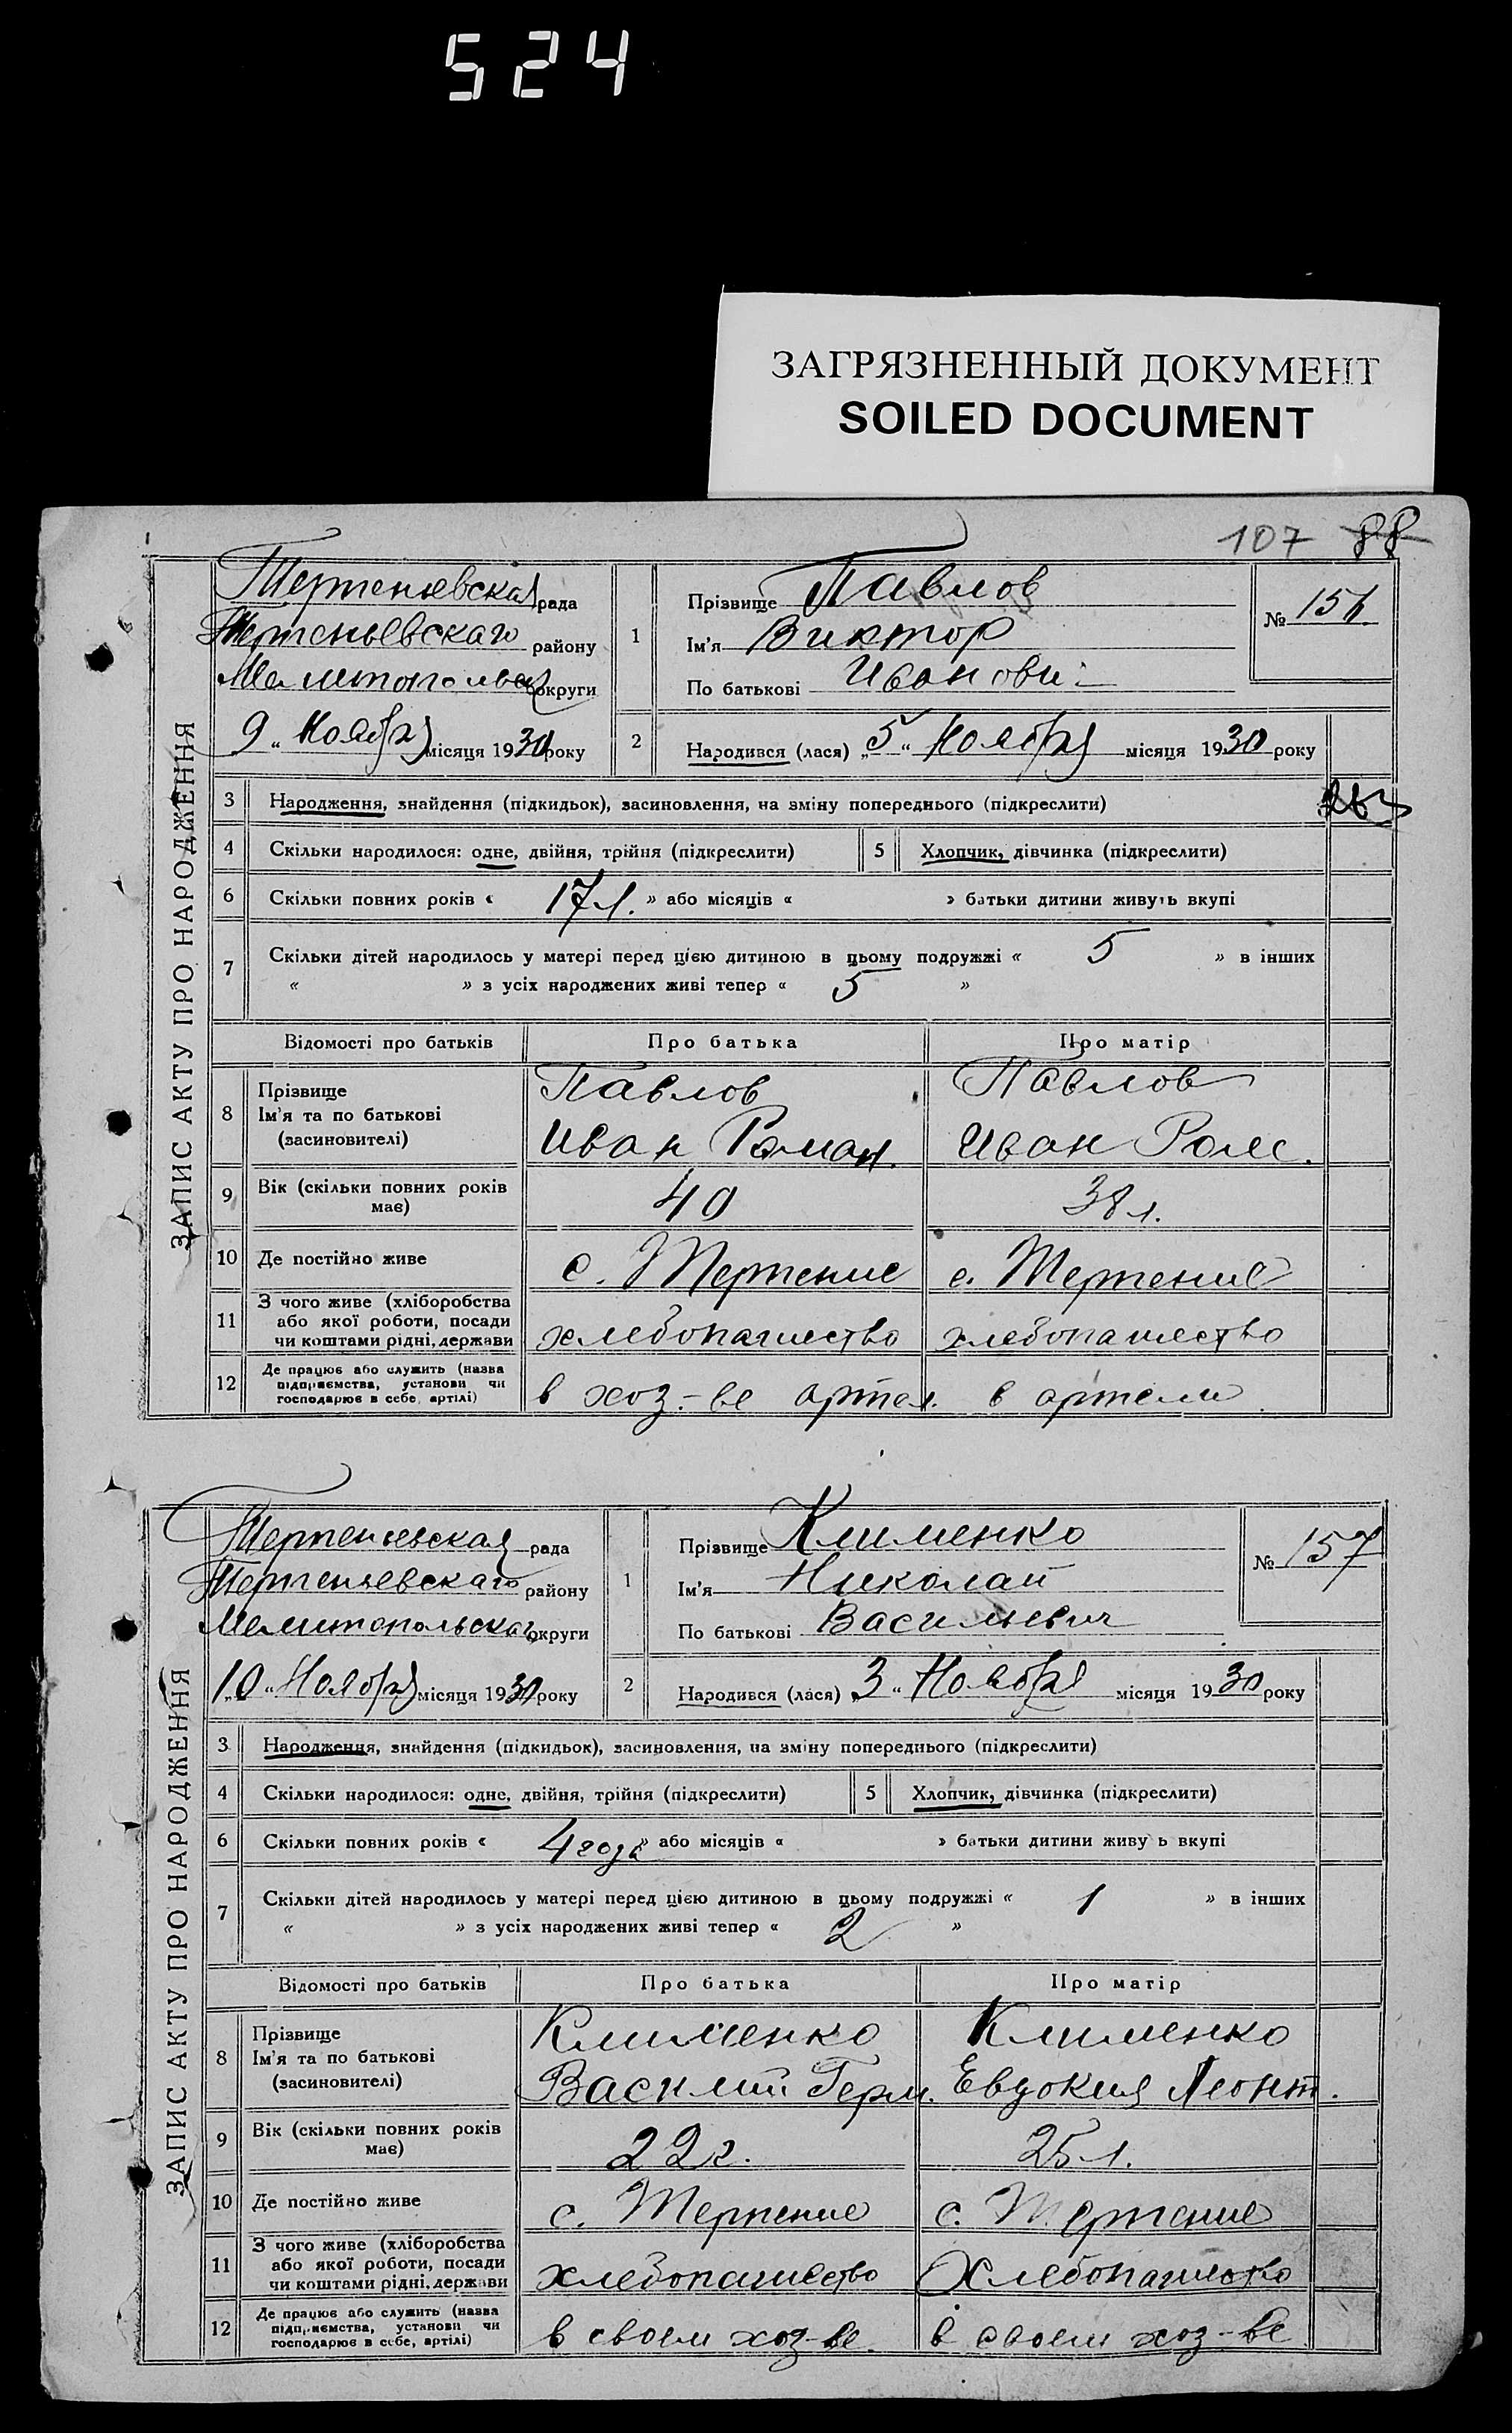 524
ЗАГРЯЗНЕННЫЙ ДОКУМЕНТ
SOILED DOCUMENT
107 88
ЗАПИС АКТУ ПРО НАРОДЖЕННЯ
Терпеньевская рада
Терпеньевскаго району
округи
9 „ Ноября місяця 1930 року
1 Прізвище Павлов
Ім'я Виктор
По батькові Иванович
№ 156
2 Народився (лася) „5" Ноября місяця 1930 року
3 Народження, знайдення (підкидьок), засиновлення, на зміну попереднього (підкреслити)
4 Скільки народилося: одне, двійня, трійня (підкреслити) 5 Хлопчик, дівчинка (підкреслити)
6 Скільки повних років « 17 л. » або місяців « » батьки дитини живуть вкупі
7 Скільки дітей народилось у матері перед цією дитиною в цьому подружжі « 5 » в інших
« » з усіх народжених живі тепер « 5 »
Відомості про батьків Про батька Про матір
8 Прізвище
Ім'я та по батькові
(засиновителі)
Павлов
Иван Роман.
Павлов
Иван
9 Вік (скільки повних років має) 40 38 л.
10 Де постійно живе с. Терпение с. Терпение
11 З чого живе (хліборобства
або якої роботи, посади
чи коштами рідні, держави
хлебопашество хлебопашество
12 Де працює або служить (назва
підприємства, установи чи
господарює в себе, артілі)
в хоз-ве артел. в артели
ЗАПИС АКТУ ПРО НАРОДЖЕННЯ
Терпеньевская рада
Терпеньевскаго району
Мелитопольскаго округи
„10" Ноября місяця 1930 року
1 Прізвище Клименко
Ім'я Николай
По батькові Васильевич
№ 157
2 Народився (лася) „3" Ноября місяця 1930 року
3 Народження, знайдення (підкидьок), засиновлення, на зміну попереднього (підкреслити)
4 Скільки народилося: одне, двійня, трійня (підкреслити) 5 Хлопчик, дівчинка (підкреслити)
6 Скільки повних років « 4 года » або місяців « » батьки дитини живу ь вкупі
7 Скільки дітей народилось у матері перед цією дитиною в цьому подружжі « 1 » в інших
« » з усіх народжених живі тепер « 2 »
Відомості про батьків Про батька Про матір
8 Прізвище
Ім'я та по батькові
(засиновителі)
Клименко
Василий Герм.
Клименко
Евдокия Леонт.
9 Вік (скільки повних років має) 22 г. 25 л.
10 Де постійно живе с. Терпение с. Терпение
11 З чого живе (хліборобства
або якої роботи, посади
чи коштами рідні, держави
хлебопашество Хлебопашество
12 Де працює або служить (назва
підприємства, установи чи
господарює в себе, артілі)
в своем хоз-ве в своем хоз-ве